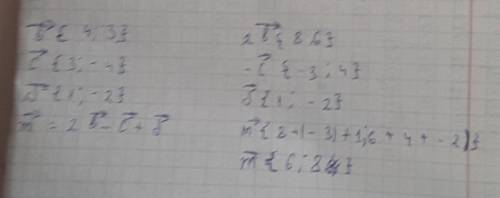 b⃗ { 4; 3}
c⃗ {3; -4}
δ⃗ {1; -2}
m⃗ = 2 b⃗ - c⃗ + δ⃗
2 b⃗ { 8 6}
-c⃗ {-3; 4}
δ⃗ {1; -2}
m⃗ { 8+(-3)+1; 6 + 4 + -2)}
m⃗ {6; 8}